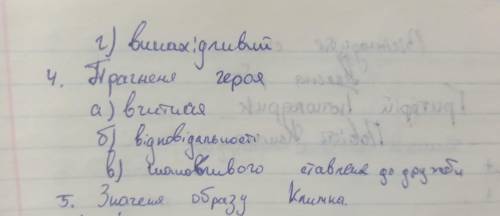 г) винахідливий
4. Прагненя героя
а) вчитися
б) відповідальності
в) шанобливого ставленя до дружби
5. Значеня образу Климка.